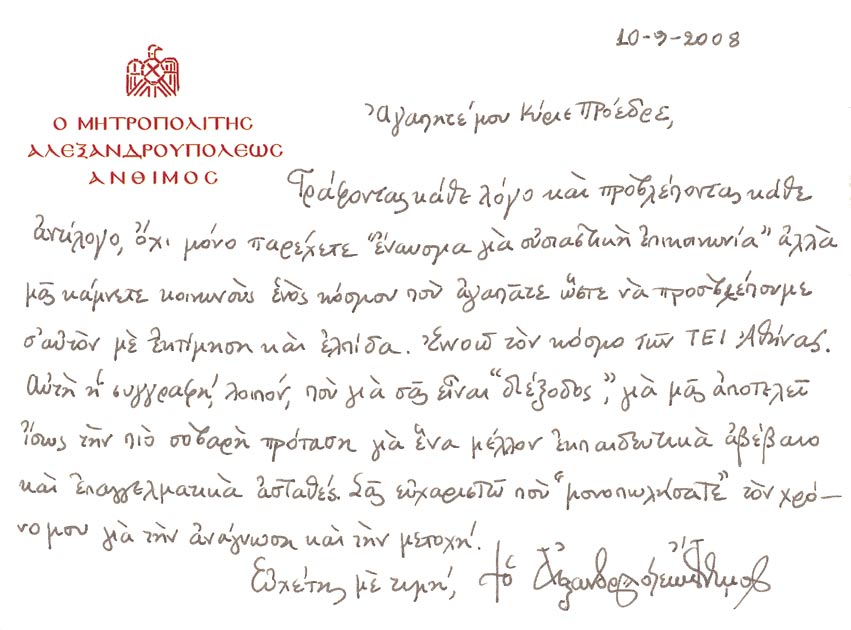 10-9-2008
Ο ΜΗΤΡΟΠΟΛΙΤΗΣ
ΑΛΕΞΑΝΔΡΟΥΠΟΛΕΩΣ
ΑΝΘΙΜΟΣ
Ἀγαπητέ μου Κύριε Πρόεδρε,
Γράφοντας κάθε λόγο καὶ προβλέποντας κάθε
ἀντίλογο, ὄχι μόνο παρέχετε "ἔναυσμα γιὰ οὐσιαστικὴ ἐπικοινωνία" ἀλλὰ
μᾶς κάμνετε κοινωνοὺς ἑνὸς κόσμου ποὺ ἀγαπᾶτε ὥστε νὰ προσβλέπουμε
σ'αὐτὸν μὲ ἐκτίμηση καὶ ἐλπίδα. Ἐννοῶ τὸν κόσμο τῶν ΤΕΙ Ἀθήνας.
Αὐτὴ ἡ συγγραφή, λοιπόν, ποὺ γιὰ σᾶς εἶναι "διέξοδος", γιὰ μᾶς ἀποτελεῖ
ἴσως τὴν πιὸ σοβαρὴ πρόταση γιὰ ἕνα μέλλον ἐκπαιδευτικὰ ἀβέβαιο
καὶ ἐπαγγελματικὰ ἀσταθές. Σᾶς εὐχαριστῶ ποὺ "μονοπωλήσατε" τὸν χρό-
νο μου γιὰ τὴν ἀνάγνωση καὶ τὴν μετοχή.
Εὐχέτης μὲ τιμή, † ὁ Ἀλεξανδρουπόλεως Ἄνθιμος